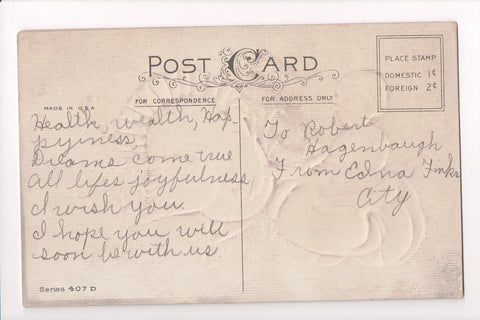 POST CARD
PLACE STAMP
DOMESTIC 1¢
FOREIGN 2¢
MADE IN U.S.A.
FOR CORRESPONDENCE
FOR ADDRESS ONLY
Health, wealth, Hap-
pyiness,
Dreams come true
All lifes joyfulness
I wish you.
I hope you will
soon be with us.
To Robert
Hagenbaugh
From Edna Finks
City
Series 407 D